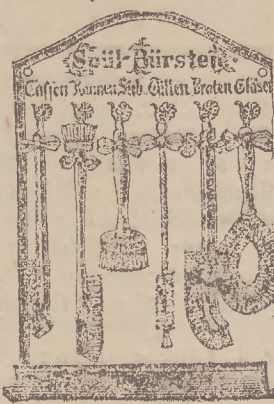 Spül-Bürsten
Tassen Kannen Silb. Tüllen Braten Gläser